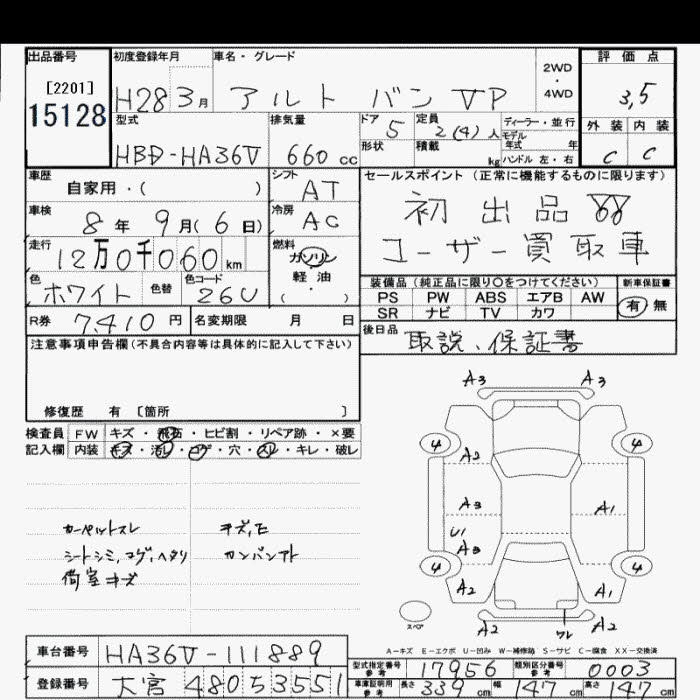 出品番号 初度登録年月 車名・グレード 2WD・4WD 評価点
[2201]
15128
H28 3月 アルト バン VP 3,5
型式 排気量 ドア 定員 ディーラー・並行 外装 内装
HBD-HA36V 660cc 5 2(4)人 モデル年式 年 C C
形状 積載 kg ハンドル 左・右
車歴 シフト セールスポイント (正常に機能するものに限ります)
自家用・( ) AT 初出品
車検 冷房
8年 9月(6日) AC ユーザー買取車
走行 燃料
12万0千060km ガソリン 軽油 (・)
装備品(純正品に限り○をつけてください) 新車保証書
色 ホワイト 色替 色コード 26U
PS PW ABS エアB AW 有 無
SR ナビ TV カワ
R券 7,410円 名変期限 月 日
後日品 取説、保証書
注意事項申告欄(不具合内容等は具体的に記入して下さい)
修復歴 有 〔箇所 〕
検査員 FW キズ・飛石・ヒビ割・リペア跡・×要
記入欄 内装 キズ・汚レ・コゲ・穴・スレ・キレ・破レ
A3 A3
4 4
A2
A3 A1
U1
A3
4 4
A2 A1
A2 ワレ A2
スペア
カーペットスレ キズ,E
シートシミ,コゲ,ヘタリ カンバンアト
荷室キズ
A-キズ E-エクボ U-凹み W-補修跡 S-サビ C-腐食 XX-交換済
車台番号 HA36V-111889
型式指定番号 参考 17956 類別区分番号 参考 0003
登録番号 大宮 480 そ 3551
車庫証明用 参考 長さ 339cm 幅 147cm 高さ 147cm